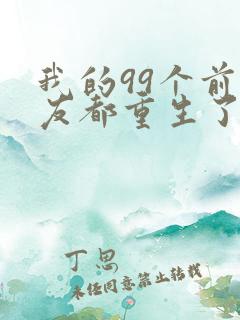 我的99个前
友都重生了
丁思
未经同意禁止转载